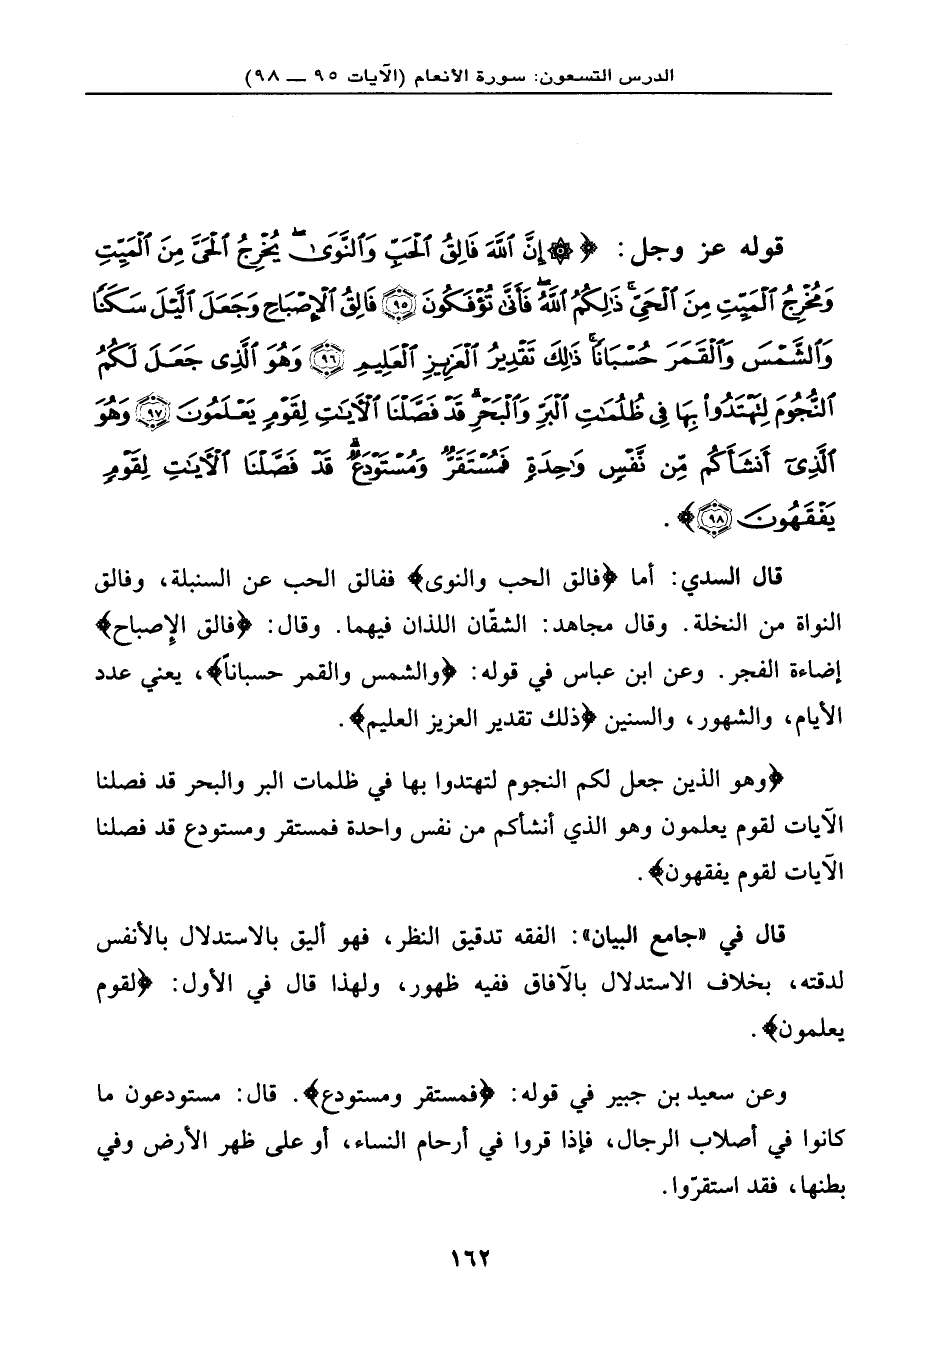 الدرس التسعون: سورة الأنعام (الآيات ٩٥ — ٩٨)
قوله عز وجل: ﴿۞ إِنَّ ٱللَّهَ فَالِقُ ٱلْحَبِّ وَٱلنَّوَىٰۖ يُخْرِجُ ٱلْحَىَّ مِنَ ٱلْمَيِّتِ
وَمُخْرِجُ ٱلْمَيِّتِ مِنَ ٱلْحَىِّۚ ذَٰلِكُمُ ٱللَّهُۖ فَأَنَّىٰ تُؤْفَكُونَ ۝٩٥ فَالِقُ ٱلْإِصْبَاحِ وَجَعَلَ ٱلَّيْلَ سَكَنًا
وَٱلشَّمْسَ وَٱلْقَمَرَ حُسْبَانًاۚ ذَٰلِكَ تَقْدِيرُ ٱلْعَزِيزِ ٱلْعَلِيمِ ۝٩٦ وَهُوَ ٱلَّذِى جَعَلَ لَكُمُ
ٱلنُّجُومَ لِتَهْتَدُوا۟ بِهَا فِى ظُلُمَٰتِ ٱلْبَرِّ وَٱلْبَحْرِۗ قَدْ فَصَّلْنَا ٱلْءَايَٰتِ لِقَوْمٍ يَعْلَمُونَ ۝٩٧ وَهُوَ
ٱلَّذِىٓ أَنشَأَكُم مِّن نَّفْسٍ وَٰحِدَةٍ فَمُسْتَقَرٌّ وَمُسْتَوْدَعٌۗ قَدْ فَصَّلْنَا ٱلْءَايَٰتِ لِقَوْمٍ
يَفْقَهُونَ ۝٩٨﴾.
قال السدي: أما ﴿فالق الحب والنوى﴾ ففالق الحب عن السنبلة، وفالق
النواة من النخلة. وقال مجاهد: الشقّان اللذان فيهما. وقال: ﴿فالق الإصباح﴾
إضاءة الفجر. وعن ابن عباس في قوله: ﴿والشمس والقمر حسباناً﴾، يعني عدد
الأيام، والشهور، والسنين ﴿ذلك تقدير العزيز العليم﴾.
﴿وهو الذين جعل لكم النجوم لتهتدوا بها في ظلمات البر والبحر قد فصلنا
الآيات لقوم يعلمون وهو الذي أنشأكم من نفس واحدة فمستقر ومستودع قد فصلنا
الآيات لقوم يفقهون﴾.
قال في «جامع البيان»: الفقه تدقيق النظر، فهو أليق بالاستدلال بالأنفس
لدقته، بخلاف الاستدلال بالآفاق ففيه ظهور، ولهذا قال في الأول: ﴿لقوم
يعلمون﴾.
وعن سعيد بن جبير في قوله: ﴿فمستقر ومستودع﴾. قال: مستودعون ما
كانوا في أصلاب الرجال، فإذا قروا في أرحام النساء، أو على ظهر الأرض وفي
بطنها، فقد استقرّوا.
١٦٢